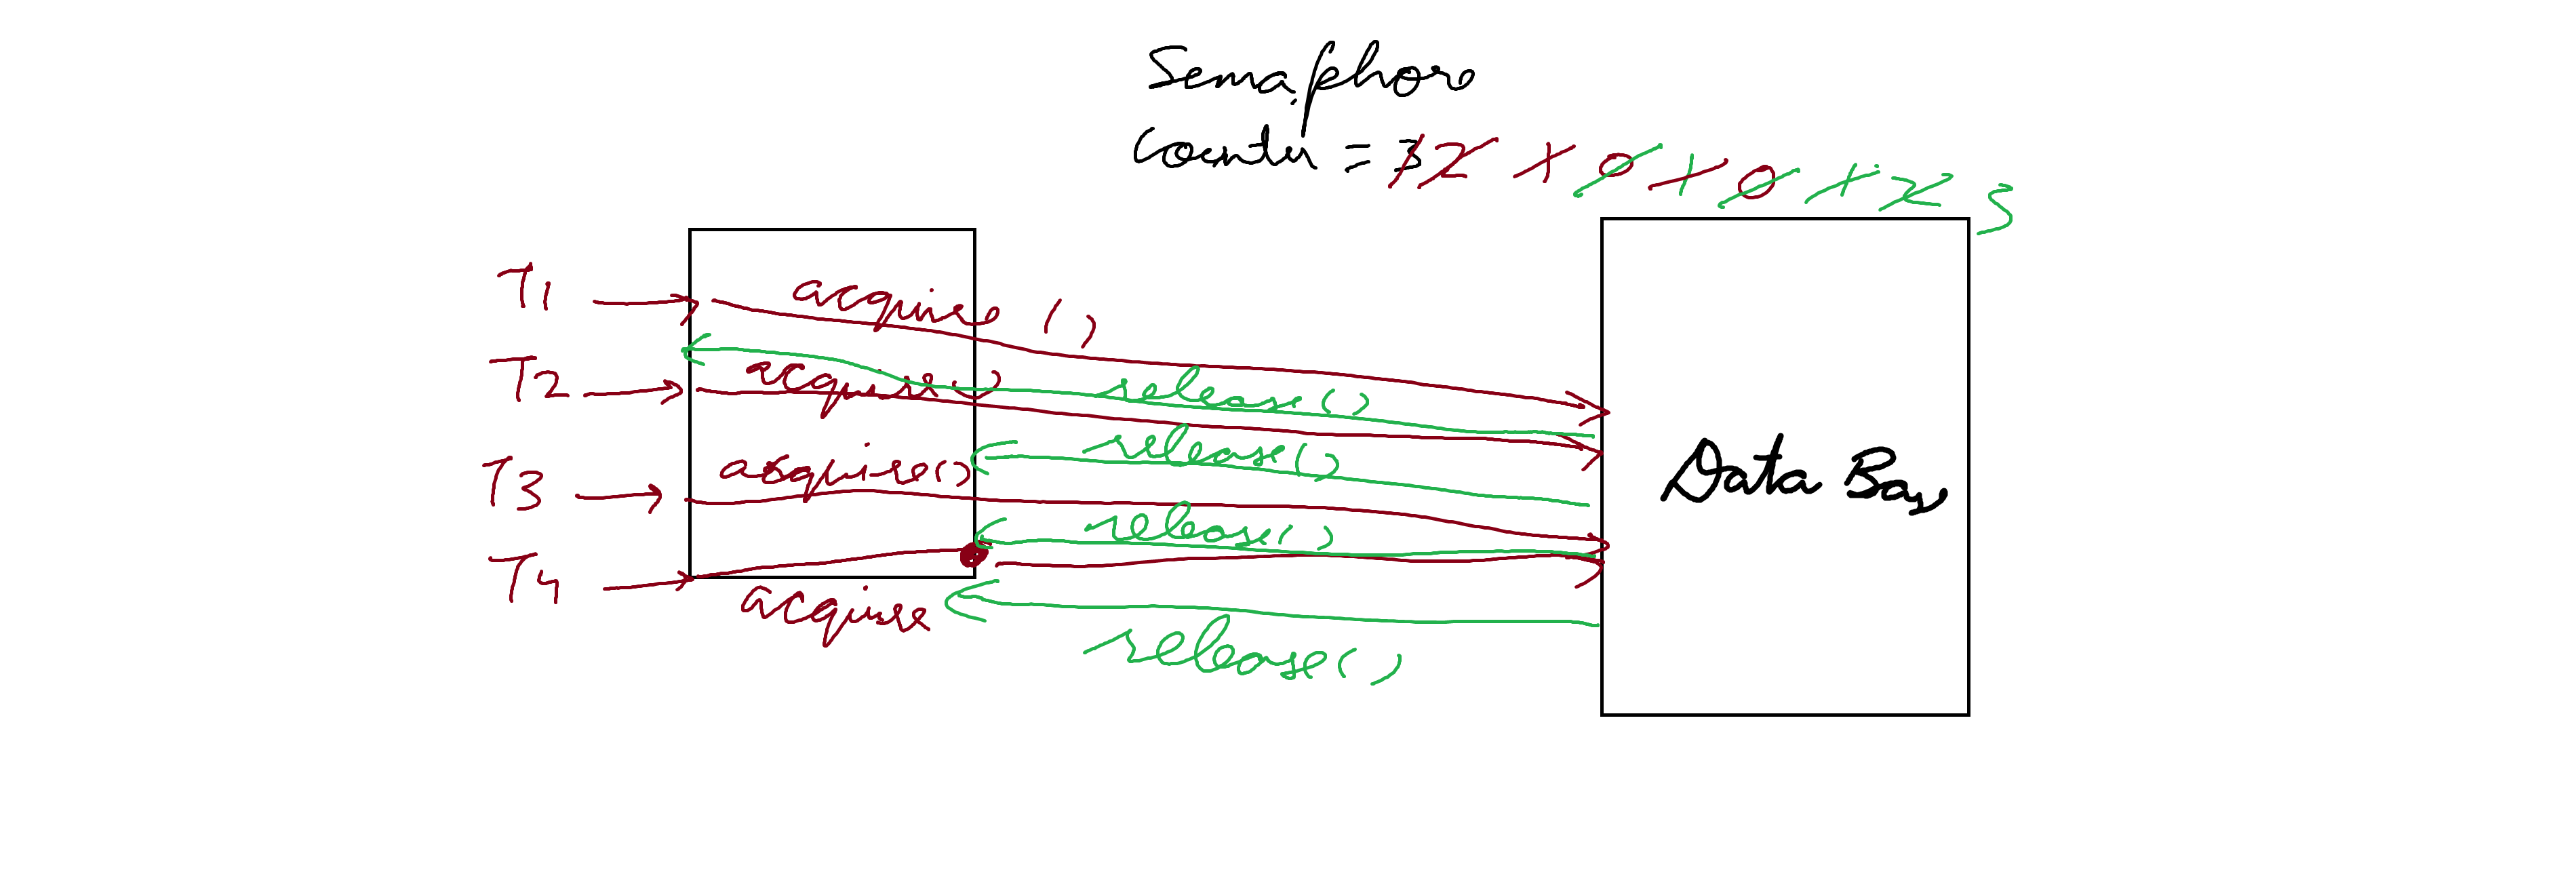 Semaphore
Counter = 3 2 1 0 1 0 1 2 3
T1 acquire ()
T2 acquire() release()
T3 acquire() release()
release()
T4 acquire
release()
Data Base